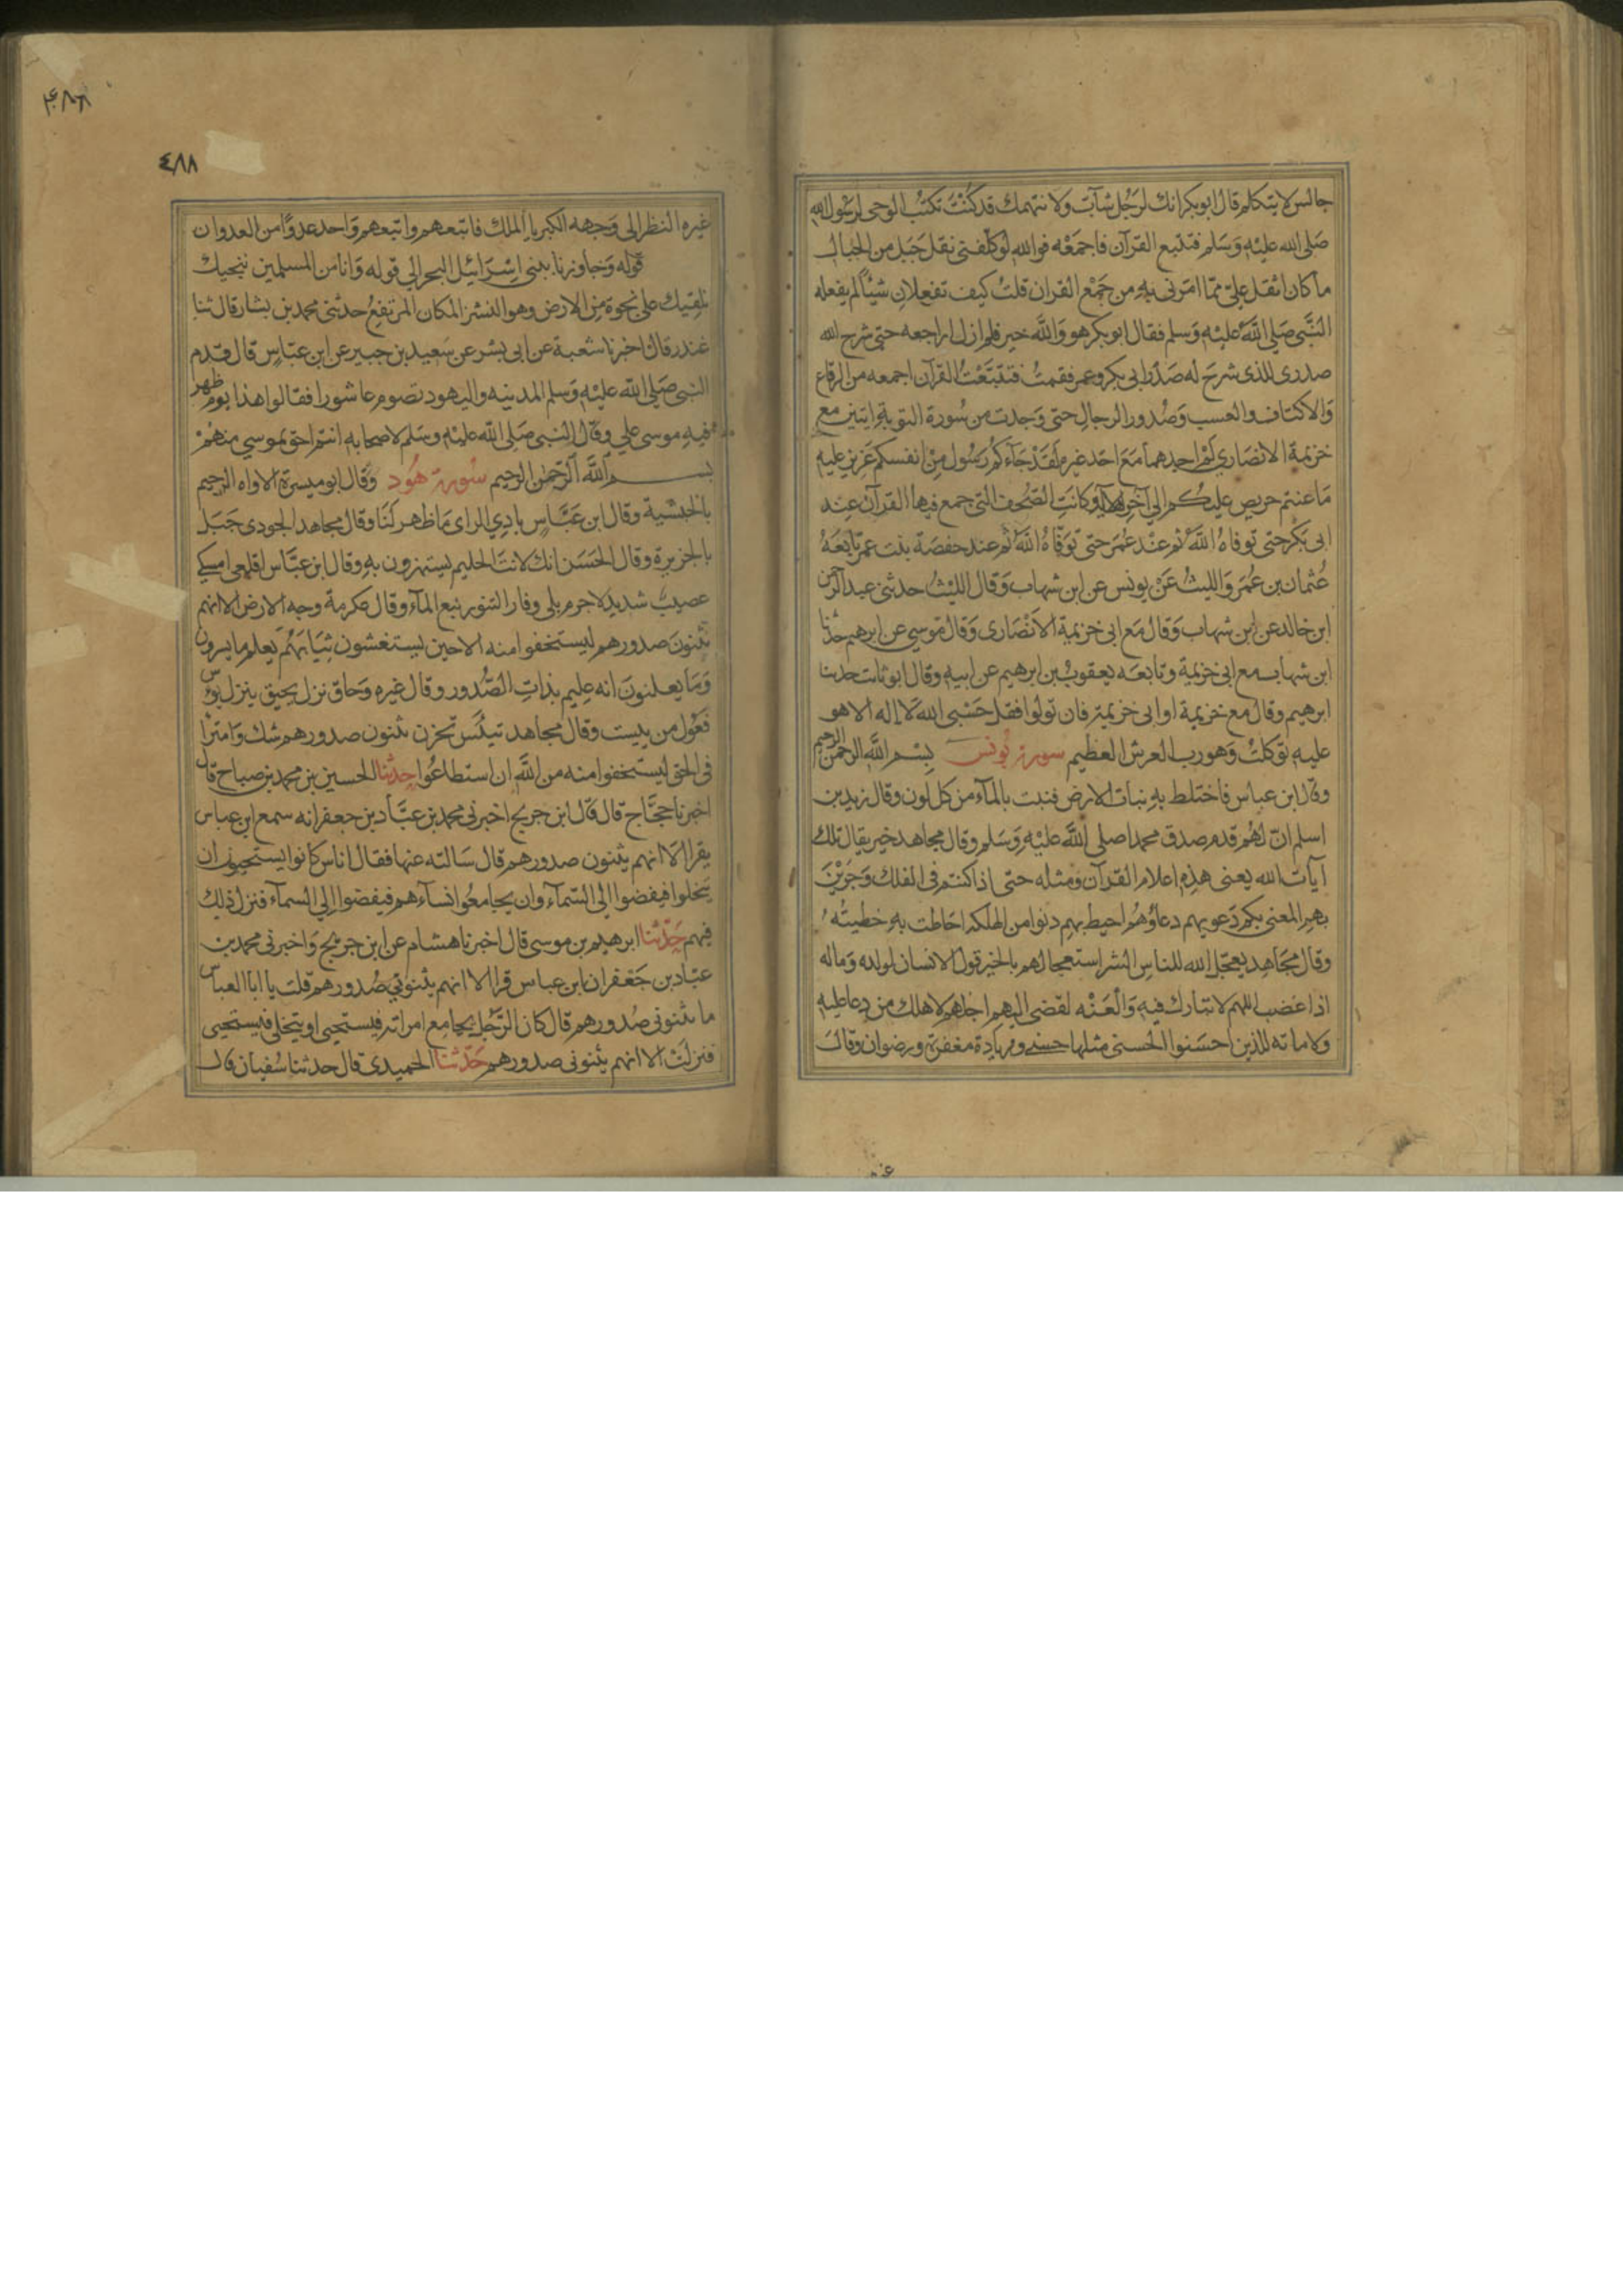 جالس لا يتكلم قال ابوبكر انك لرجل شاب ولا نتهمك قد كنت تكتب الوحى لرسول الله
صلى الله عليه وسلم فتتبع القرآن فاجمعه فوالله لو كلفنى نقل جبل من الجبال
ما كان اثقل على مما امرنى به من جمع القران قلت كيف تفعلان شيئا لم يفعله
النبى صلى الله عليه وسلم فقال ابو بكر هو والله خير فلم ازل اراجعه حتى شرح الله
صدرى للذى شرح له صدر ابى بكر وعمر فقمت فتتبعت القرآن اجمعه من الرقاع
والاكتاف والعسب وصدور الرجال حتى وجدت من سورة التوبة ايتين مع
خزيمة الانصارى لم اجدهما مع احد غيره لقد جاءكم رسول من انفسكم عزيز عليه
ما عنتم حريص عليكم الى آخرها وكانت الصحف التى جمع فيها القرآن عند
ابى بكر حتى توفاه الله ثم عند عمر حتى توفاه الله ثم عند حفصة بنت عمر تابعه
عثمان بن عمر والليث عن يونس عن ابن شهاب وقال الليث حدثنى عبد الرحمن
ابن خالد عن ابن شهاب وقال مع ابى خزيمة الانصارى وقال موسى عن ابرهيم حدثنا
ابن شهاب مع ابى خزيمة وتابعه يعقوب بن ابرهيم عن ابيه وقال ابو ثابت حدثنا
ابرهيم وقال مع خزيمة او ابى خزيمة فان تولوا فقل حسبى الله لا اله الا هو
عليه توكلت وهو رب العرش العظيم سورة يونس بسم الله الرحمن الرحيم
وقال ابن عباس فاختلط به نبات الارض فنبت بالمآء من كل لون وقال زيد بن
اسلم ان لهم قدم صدق محمدا صلى الله عليه وسلم وقال مجاهد خير يقال تلك
آيات الله يعنى هذه اعلام القرآن ومثله حتى اذا كنتم فى الفلك وجرين
بهم المعنى بكم دعويهم دعاؤهم احيط بهم دنوا من الهلكه احاطت به خطيئته
وقال مجاهد يعجل الله للناس الشر استعجالهم بالخير قول الانسان لولده وماله
اذا غضب اللهم لا تبارك فيه والعنه لقضى اليهم اجلهم لاهلك من دعا عليه
ولاماته للذين احسنوا الحسنى مثلها حسنى وزيادة مغفرة ورضوان وقال
٤٨٨
غيره النظر الى وجهه الكبريا الملك فاتبعهم واتبعهم واحد عدوا من العدوان
قوله وجاوزنا ببنى اسرائيل البحر الى قوله وانا من المسلمين ننجيك
نلقيك على نجوة من الارض وهو النشز المكان المرتفع حدثنى محمد بن بشار قال ثنا
غندر قال اخبرنا شعبة عن ابى بشر عن سعيد بن جبير عن ابن عباس قال قدم
النبى صلى الله عليه وسلم المدينه واليهود تصوم عاشورا فقالوا هذا يوم ظهر
فيه موسى على وقال النبى صلى الله عليه وسلم لاصحابه انتم احق بموسى منهم
بسم الله الرحمن الرحيم سورة هود وقال ابو ميسرة الاواه الرحيم
بالحبشية وقال ابن عباس بادى الراى ما ظهر لنا وقال مجاهد الجودى جبل
بالجزيرة وقال الحسن انك لانت الحليم يستهزون به وقال ابن عباس اقلعى امسكى
عصيب شديد لا جرم بلى وفار التنور نبع المآء وقال عكرمة وجه الارض الا انهم
يثنون صدورهم ليستخفوا منه الا حين يستغشون ثيابهم يعلم ما يسرون
وما يعلنون انه عليم بذات الصدور وقال غيره وحاق نزل يحيق ينزل يوس
فعول من يست وقال مجاهد تبتئس تحزن يثنون صدورهم شك وامترا
فى الحق ليستخفوا منه من الله ان استطاعوا حدثنا الحسين بن محمد بن صباح قال
اخبرنا حجاج قال قال ابن جريج اخبرنى محمد بن عباد بن جعفر انه سمع ابن عباس
يقرا الا انهم يثنون صدورهم قال سالته عنها فقال اناس كانوا يستحيون ان
يتخلوا فيفضوا الى السمآء وان يجامعوا نسآءهم فيفضوا الى السمآء فنزل ذلك
فيهم حدثنا ابرهيم بن موسى قال اخبرنا هشام عن ابن جريج واخبرنى محمد بن
عباد بن جعفر ان ابن عباس قرا الا انهم يثنونى صدورهم قلت يا ابا العباس
ما يثنونى صدورهم قال كان الرجل يجامع امراته فيستحيى او يتخلى فيستحيى
فنزلت الا انهم يثنونى صدورهم حدثنا الحميدى قال حدثنا سفيان قال